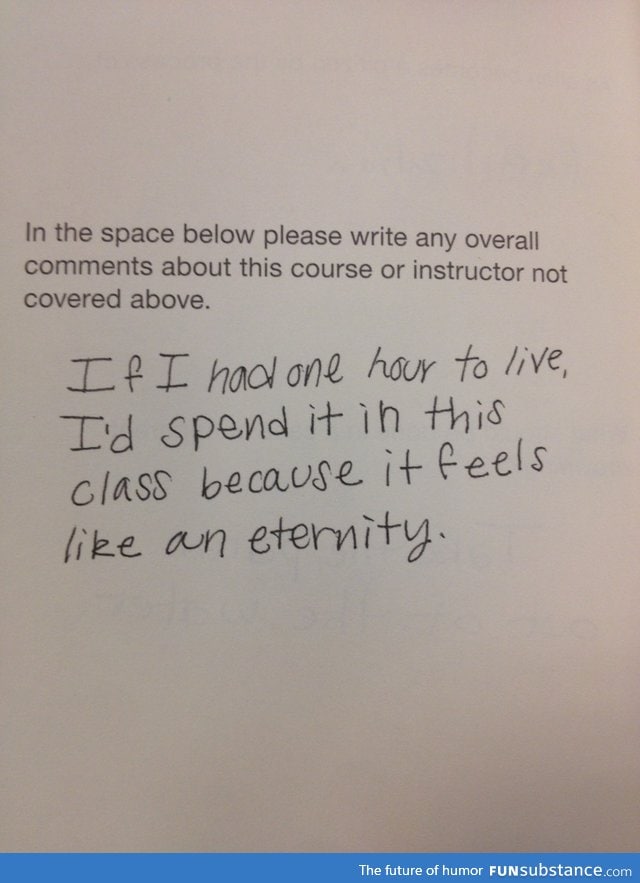 In the space below please write any overall
comments about this course or instructor not
covered above.
If I had one hour to live,
I'd spend it in this
class because it feels
like an eternity.
The future of humor FUNsubstance.com